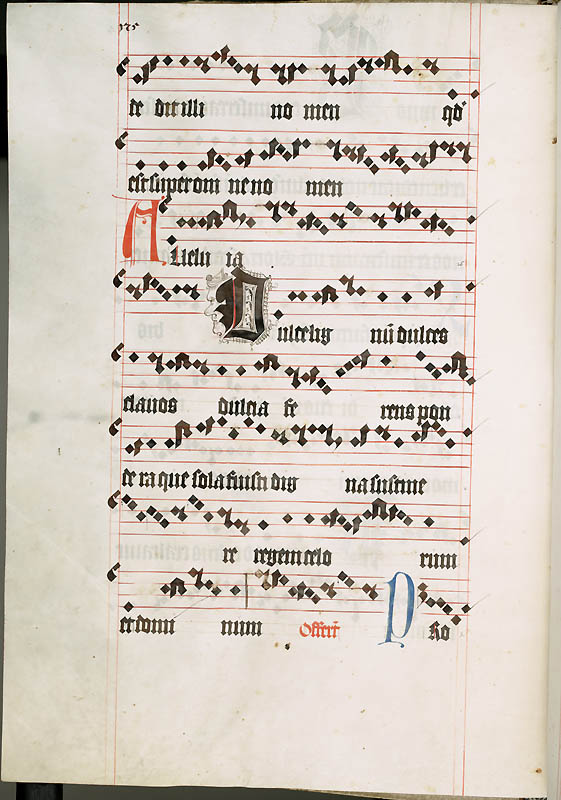 de dit illi no men qd̄
est super om ne no men
Allelu ia
Dulce lig nū dulces
clauos dulcia fe rens pon
de ra que sola fuisti dig na sustine
re regem celo rum
et domi num Offert̄ Pro